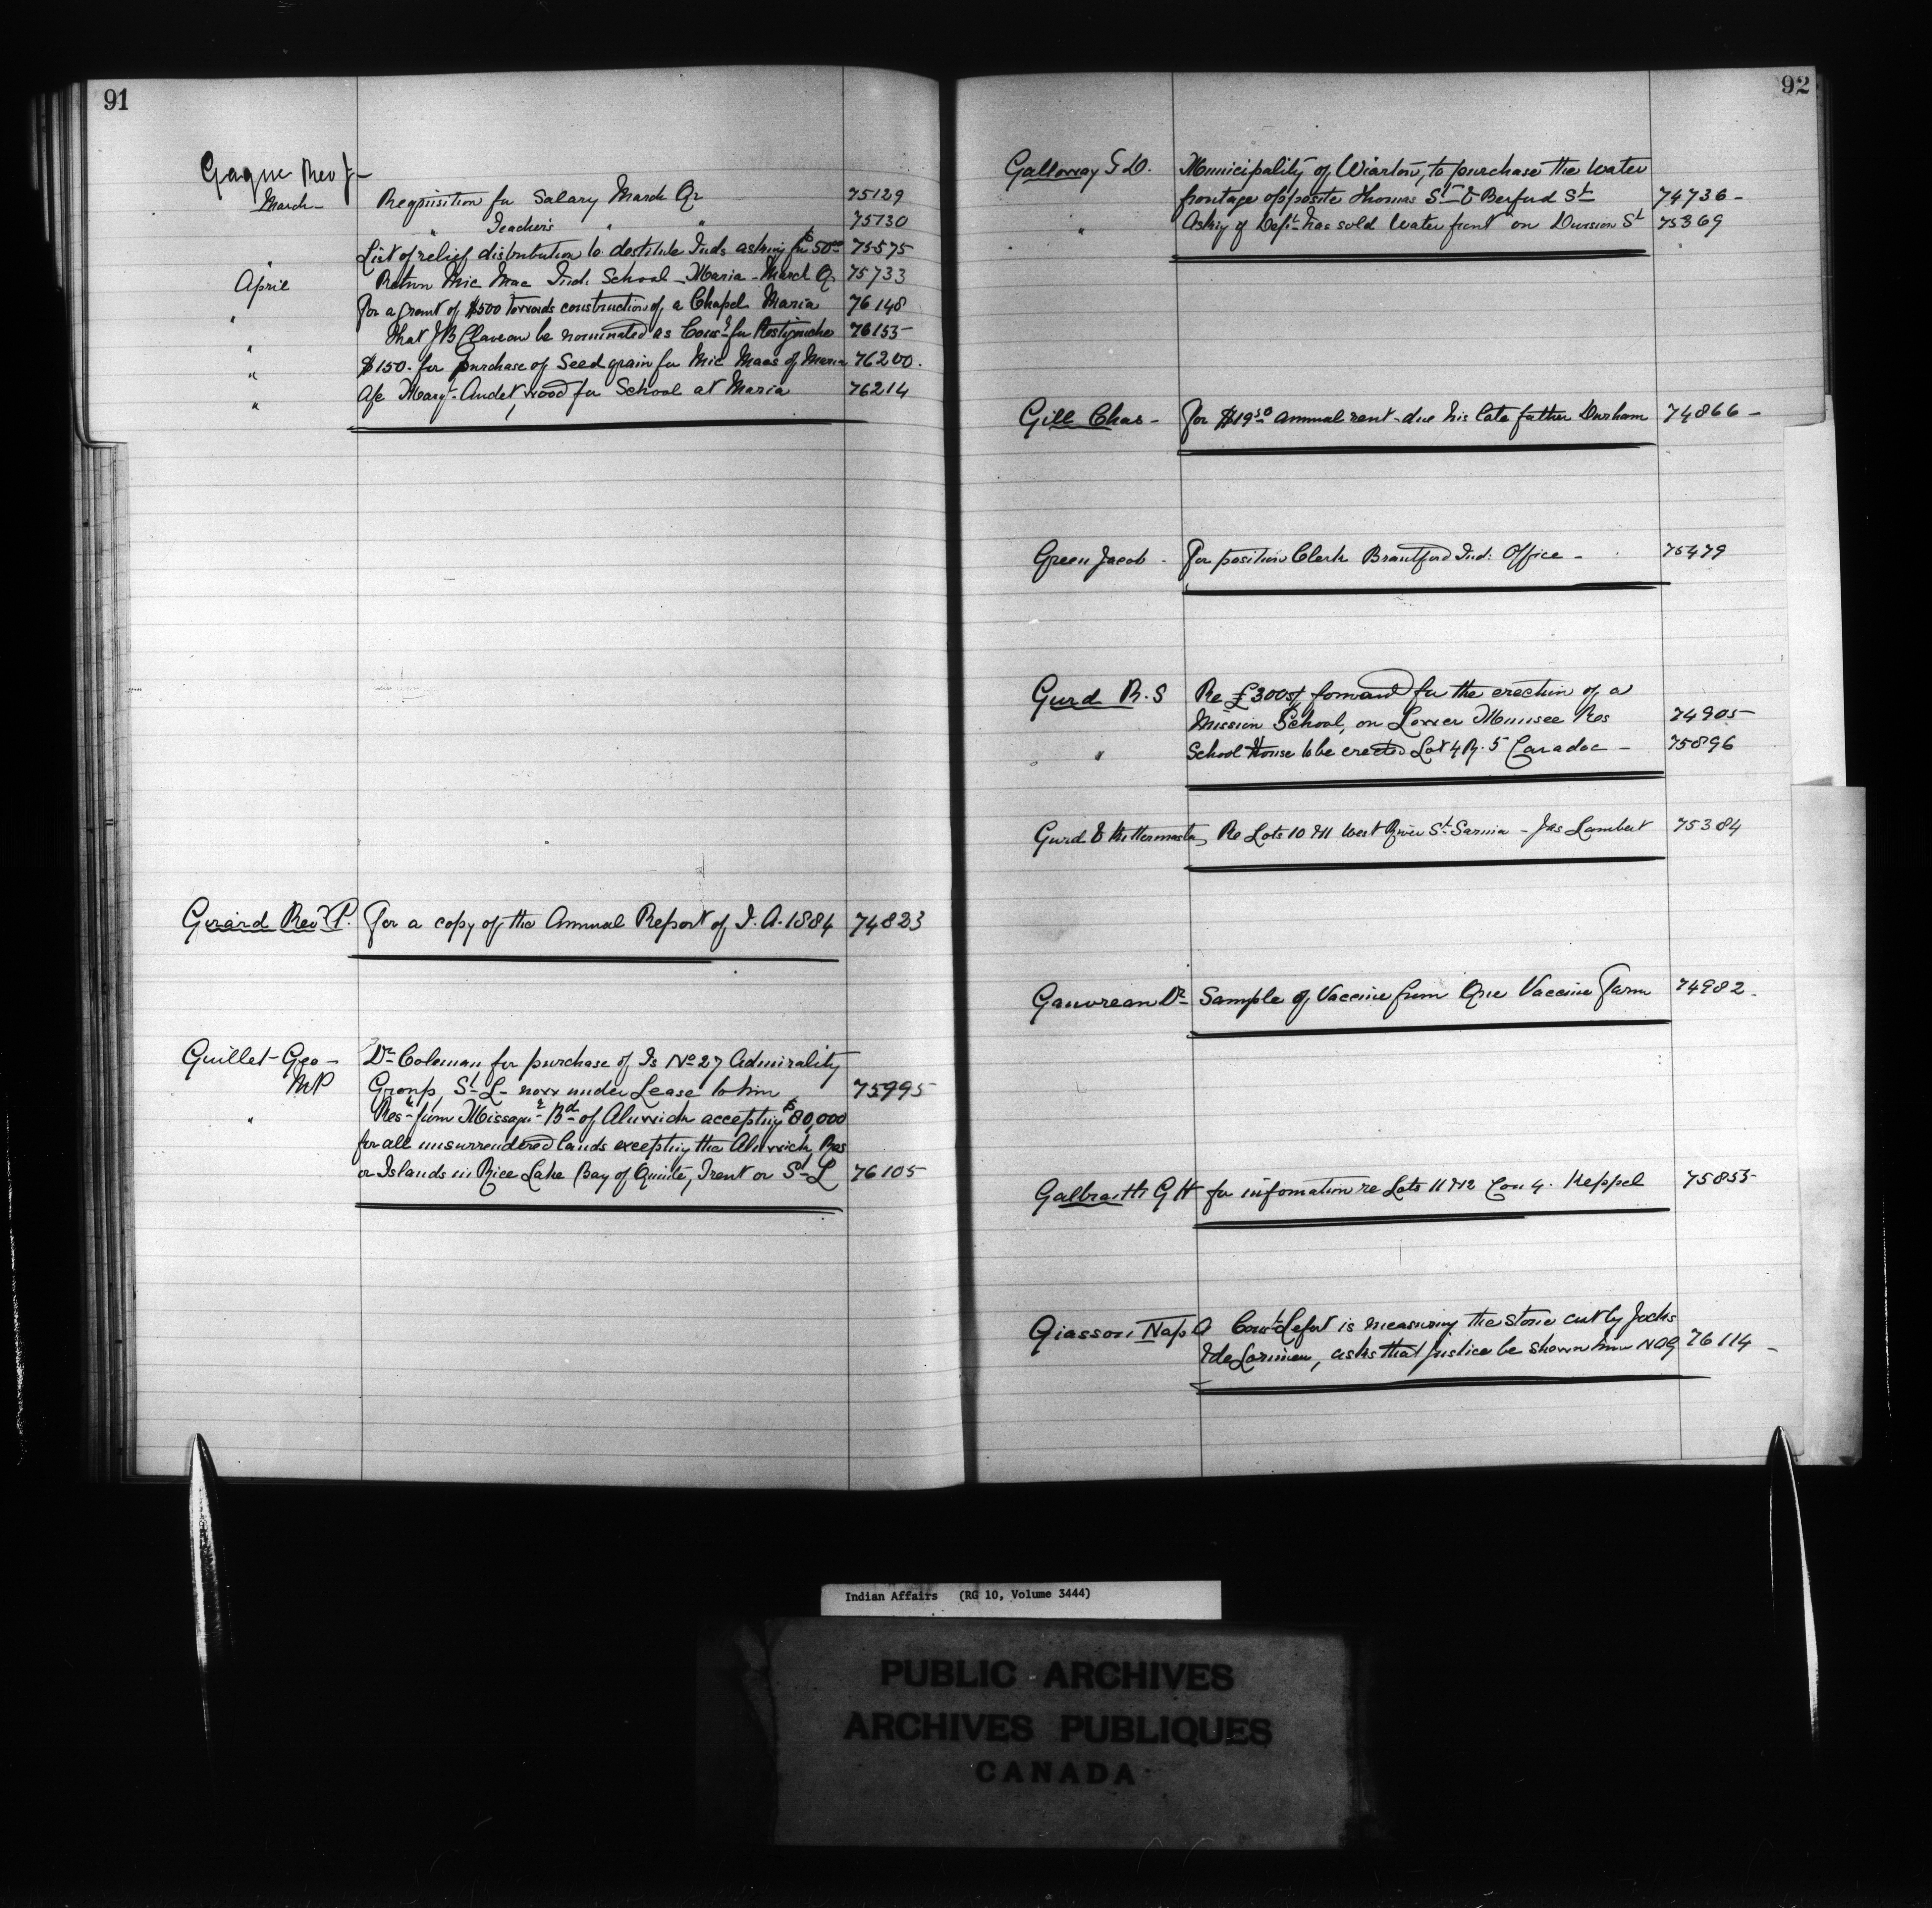 91
Gagne Rev J-
March- Requisition for Salary March Qr 75129
" Teacher's " " 75130
" List of relief distribution to destitute Inds asking for $50.00 75575
April Return Mic Mac Ind. School - Maria - March Q. 75733
" For a grant of $500 towards construction of a Chapel Maria 76148
" that J B Claveau be nominated as for Restigouche 76155
" $150. for purchase of Seed grain for Mic Macs of Maria 76200.
" A/c Audet, wood for School at Maria 76214
Gerard Revd P. For a copy of the Annual Report of I. A. 1884 74823
Guillet Geo - Dr Coleman for purchase of Is No 27 Admirality
MP Group, St L - now under Lease to him 75995
" Res- from Missaga Bd of Alnwick accepting $80,000
for all unsurrendered lands excepting the Alnwick Res
or Islands in Rice Lake Bay of Quinte, Trent or St L 76105
92
Galloway G D. Municipality of Wiarton, to purchase the water
frontage opposite Thomas St & Berford St 74736-
" Askg if Dept has sold water front on St 75369
Gill Chas - For $19.50 annual rent - due his late father Durham 74866-
Green Jacob - For position Clerk Brantford Ind: Office - 75479
Gurd R. S Re £300 forward for the erection of a
Mission School, on Lower Munsee Res 74905
" School House to be erected Lot 4 R. 5 Caradoc - 75896
Gurd & Kittermaster, Re Lots 10 & 11 West River St Sarnia - Jas Lambert 75384
Gauvreau Dr - Sample of Vaccine from Que Vaccine Farm 74982-
Galbraith G H for information re Lots 11 & 12 Con 4. Keppel 75855
Giasson Nap A is measuring the stone cut by Jocks
& deLorimier, asks that justice be shown him NAG 76114-
Indian Affairs (RG 10, Volume 3444)
PUBLIC ARCHIVES
ARCHIVES PUBLIQUES
CANADA